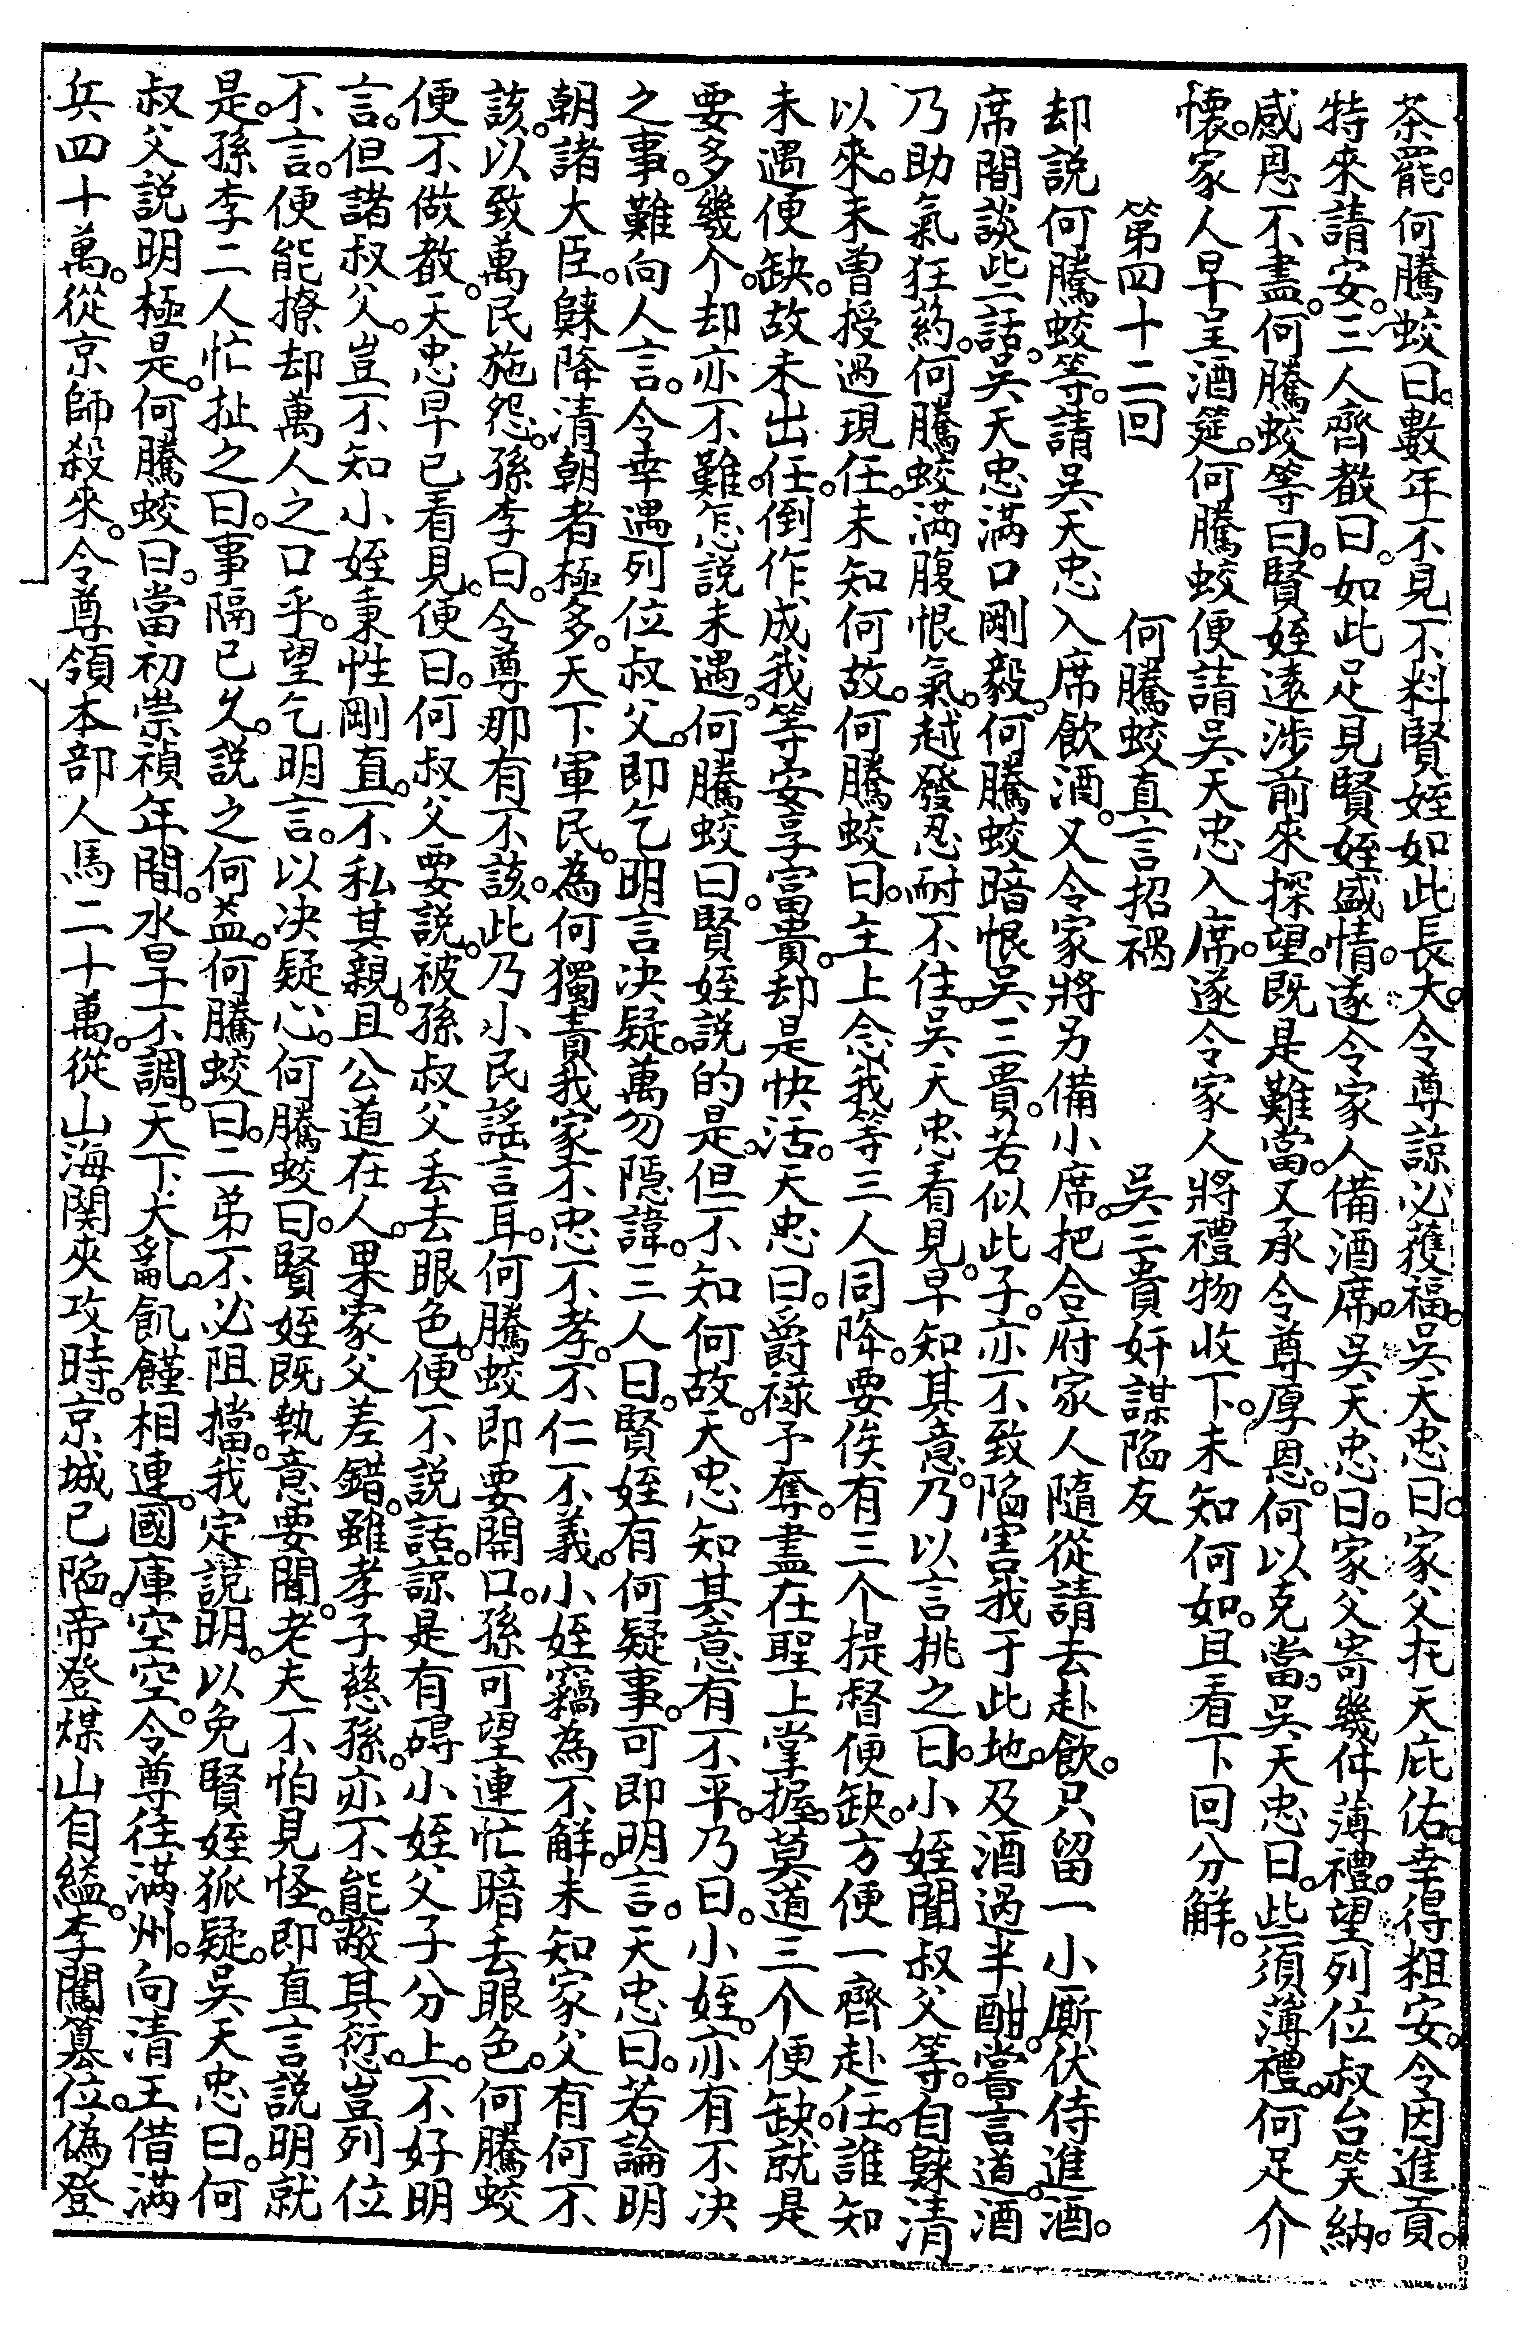 茶罷。何騰蛟曰。數年不見。不料賢姪如此長大。令尊諒必獲福。吳天忠曰。家父托天庇佑。幸得粗安。今因進貢。
特來請安。三人齊敎曰。如此足見賢姪盛情。遂令家人備酒席。吳天忠曰。家父寄幾件薄禮。望列位叔台笑納。
感恩不盡。何騰蛟等曰。賢姪遠涉前來探望。既是難當。又承令尊厚恩。何以克當。吳天忠曰。些須薄禮。何足介
懷。家人早呈酒筵。何騰蛟便請吳天忠入席。遂令家人將禮物收下。未知何如。且看下回分解。
第四十二回　何騰蛟直言招禍　吳三貴奸謀陷友
却說何騰蛟等。請吳天忠入席飲酒。又令家將另備小席。把合府家人隨從請去赴飲。只留一小厮伏侍進酒。
席間談些話。吳天忠滿口剛毅。何騰蛟暗恨吳三貴。若似此子。亦不致陷害我于此地。及酒過半酣。嘗言道。酒
乃助氣狂葯。何騰蛟满腹恨氣。越發忍耐不住。吳天忠看見。早知其意。乃以言挑之曰。小姪聞叔父等。自歸清
以來。未曾授過現任。未知何故。何騰蛟曰。主上念我等三人同降。要俟有三个提督便缺。方便一齊赴任。誰知
未遇便缺。故未出任。倒作成我等安享富貴。却是快活。天忠曰。爵祿予奪。盡在聖上掌握。莫道三个便缺。就是
要多幾个。却亦不難。怎說未遇。何騰蛟曰。賢姪說的是。但不知何故。天忠知其意有不平。乃曰。小姪。亦有不決
之事。難向人言。今幸遇列位叔父。即乞明言決疑。萬勿隱諱。三人曰。賢姪有何疑事。可即明言。天忠曰。若論明
朝諸大臣。歸降清朝者極多。天下軍民。為何獨責我家不忠不孝。不仁不義。小姪竊為不解。未知家父有何不
該。以致萬民施怨。孫李曰。令尊那有不該。此乃小民謠言耳。何騰蛟即要開口。孫可望連忙暗丢眼色。何騰蛟
便不做敎。天忠早已看見。便曰。何叔父要說。被孫叔父丢去眼色。便不說話。諒是有碍小姪父子分上。不好明
言。但諸叔父。豈不知小姪秉性剛直。不私其親。且公道在人。果家父差錯。雖孝子慈孫。亦不能蔽其愆。豈列位
不言。便能撩却萬人之口乎。望乞明言。以決疑心。何騰蛟曰。賢姪既執意要聞。老夫不怕見怪。即直言說明就
是。孫李二人忙扯之曰。事隔已久。說之何益。何騰蛟曰。二弟不必阻擋。我定說明。以免賢姪狐疑。吳天忠曰。何
叔父說明極是。何騰蛟曰。當初崇禎年間。水旱不調。天下大亂。飢饉相連。國庫空空。令尊往满州。向清王借满
兵四十萬。從京師殺來。令尊領本部人馬二十萬。從山海関夾攻時。京城已陷。帝登煤山自縊。李闖篡位。偽登